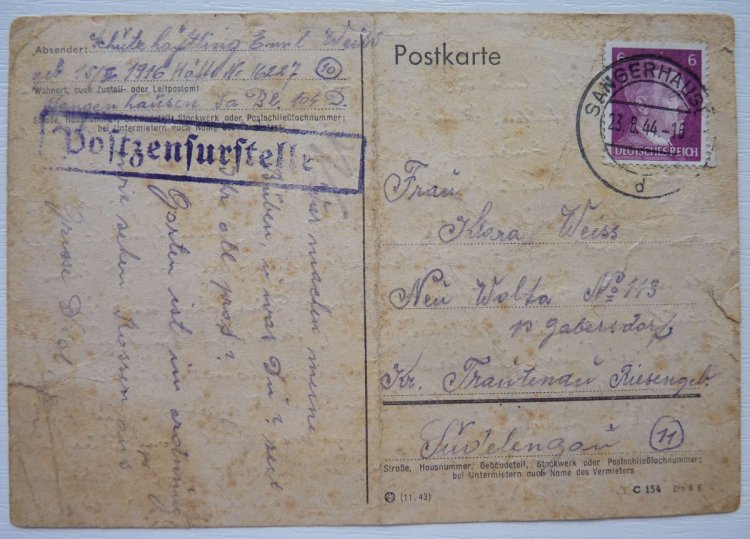 Absender: Schutzhäftling Emil Weiss
geb. 1916 Häftl. Nr 16227 (10)
Wohnort, auch Zustell- oder Leitpostamt
Sangerhausen
Straße, Hausnummer, Gebäudeteil, Stockwerk oder Postschließfachnummer;
bei Untermietern auch Name des Vermieters
Postzensurstelle
machen meine
Buben, war Du?
Ihr all
Garten ist im ordnung
sehen Rossen aus
Grüsse Dich
Postkarte
6 6
DEUTSCHES REICH
SANGERHAUS
23.8.44-1
d
Frau
Klara Weiss
Neu Wolta No 113
p Gabersdorf
Kr. Trautenau Riesengeb.
Sudetengau (11)
Straße, Hausnummer, Gebäudeteil, Stockwerk oder Postschließfachnummer;
bei Untermietern auch Name des Vermieters
(11. 43)
C 154 Din A 6